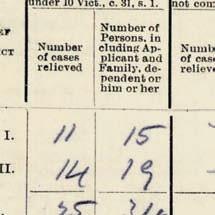 under 10 Vict., c. 31, s. 1.
not com
EF
ICT
Number of cases relieved
Number of Persons, including Applicant and Family, dependent or him or her
Numb
of cas
reliev
I. 11 15
II. 14 19
25